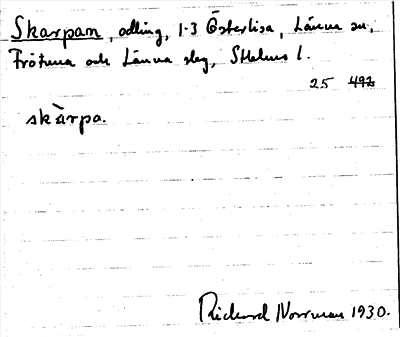 Skarpan, odling, 1-3 Österlisa, Länna sn,
Frötuna och Länna slg, Sthlms l.
25 492
skàrpa.
Rickard Norrman 1930.